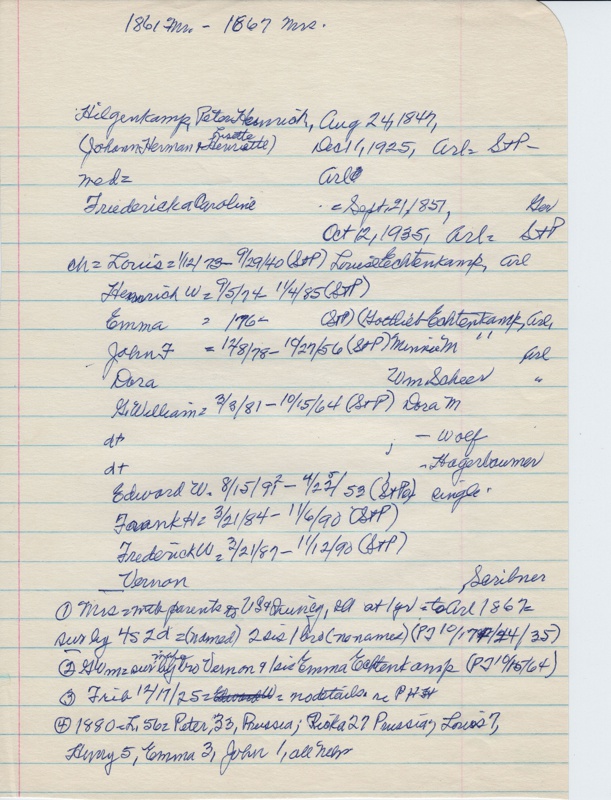 1861 Mr. - 1867 Mrs.
Hilgenkamp, Peter Heinrich, Aug 24, 1847,
Lisette
(Johann Herman + Henriette) Dec 1, 1925, Arl = St P -
med = Arl
Friedericka Caroline = Sept. 21, 1851, Ger
Oct 12, 1935, Arl = St P
ch = Louis = 1/12/73 - 9/29/40 (St P) Louise Echtenkamp, Arl
Henrich W = 9/5/74 - 11/4/85 (St P)
Emma = 1/76 - (St P) (Gottlieb Echtenkamp, Arl,
John F = 12/8/78 - 10/27/56 (St P) Minnie M " " Arl
Dora Wm Scheer "
G. William = 3/8/81 - 10/15/64 (St P) Dora M
dt ; - Wolf
dt - Hagerbaumer
Edward W. 8/15/91 - 4/22/53 (St P) single.
Frank H = 3/21/84 - 11/6/90 (St P)
Frederick W = 3/21/87 - 11/12/90 (St P)
Vernon , Scribner
① Mrs = with parents to US + Quincy, Ill at 1 yr = to Arl 1867 =
sur by 4s 2d = (named) 2 sis 1 bro (no names) (PJ 10/17 /35)
② GWm = sur by bro Vernon & 1 sis Emma Echtenkamp (PJ 10/15/64)
③ Trib 12/17/25 = no details re PHH
④ 1880 = L, 56 = Peter, 33, Prussia; Rieka 27 Prussia; Louis 7,
Henry 5, Emma 3, John 1, all Nebr